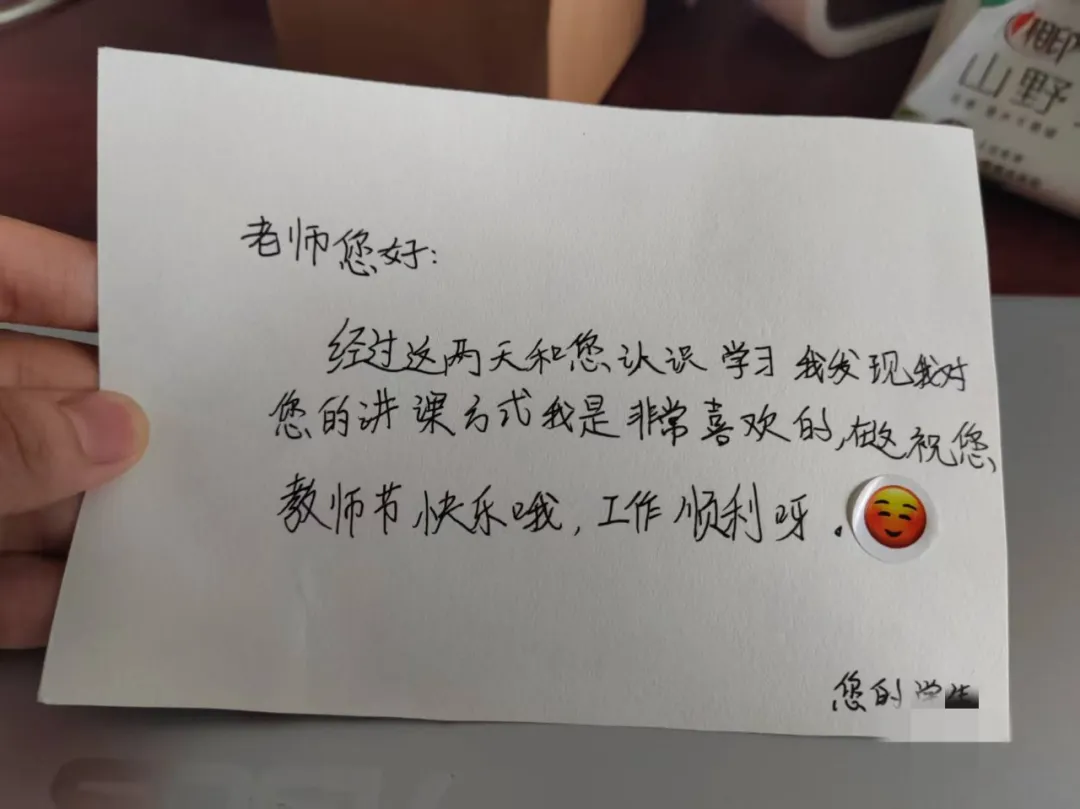 相印
山野
老师您好:
经过这两天和您认识学习我发现我对
您的讲课方式我是非常喜欢的,在这祝您
教师节快乐哦,工作顺利呀.
您的学生